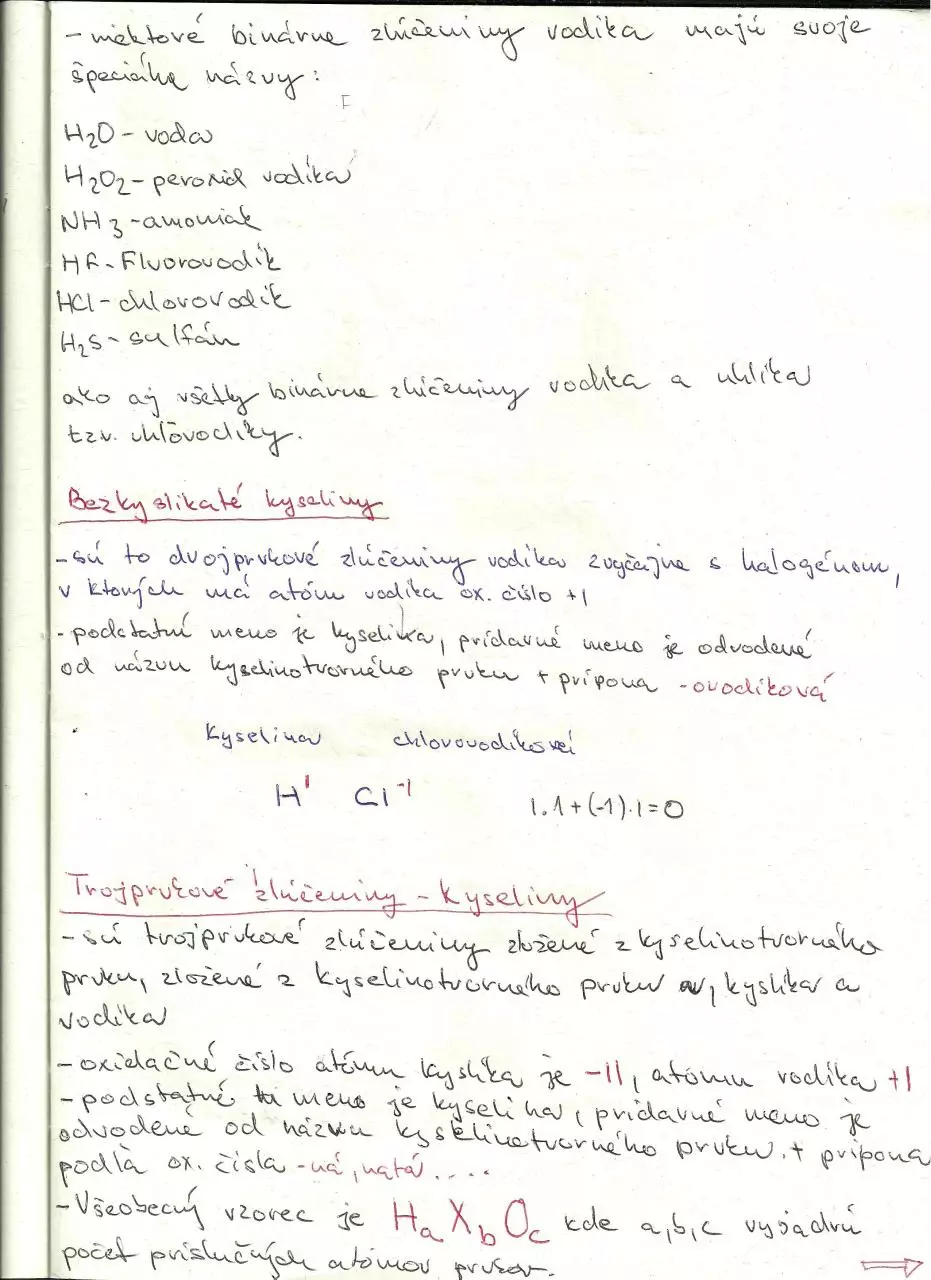 - niektové binárne zlúčeniny vodíka majú svoje
špeciálne názvy:
F
H2O - voda
H2O2 - peroxid vodíka
NH3 - amoniak
HF - Fluorovodík
HCl - chlorovodík
H2S - sulfán
ako aj všetky binárne zlúčeniny vodíka a uhlíka
tzv. uhľovodíky.
Bezkyslíkaté kyseliny
- sú to dvojprvkové zlúčeniny vodíka zvyčajne s halogénom,
v ktorých má atóm vodíka ox. číslo +I
- podstatné meno je kyselina, prídavné meno je odvodené
od názvu kyselinotvorného prvku + prípona -ovodíková
Kyselina chlorovodíková
H^I Cl^-I 1.1+(-1).1=0
Trojprvkové zlúčeniny - Kyseliny
- sú trojprvkové zlúčeniny zložené z kyselinotvorného
prvku, zložené z kyselinotvorného prvku, kyslíka a
vodíka
- oxidačné číslo atómu kyslíka je -II, atómu vodíka +I
- podstatné meno je kyselina, prídavné meno je
odvodené od názvu kyselinotvorného prvku + prípona
podľa ox. čísla -ná, natá....
- Všeobecný vzorec je HaXbOc kde a,b,c vyjadrú
počet príslučných atómov prvkov.